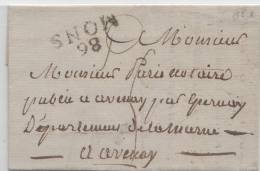 MONS
98
Monsieur
Monsieur Paris notaire
public a avenay par Epernay
Département de la Marne
A avenay